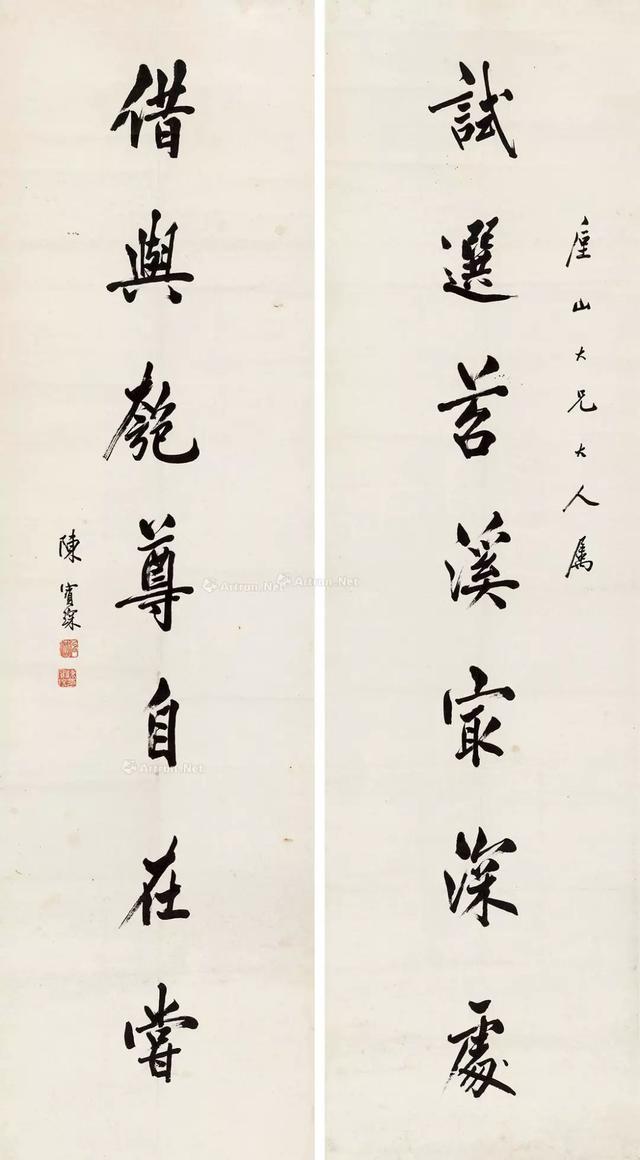 厓山大兄大人属
試選苕溪冣深處
借與匏尊自在嘗
陳寶琛
Artron.Net
Artron.Net
Artron.Net